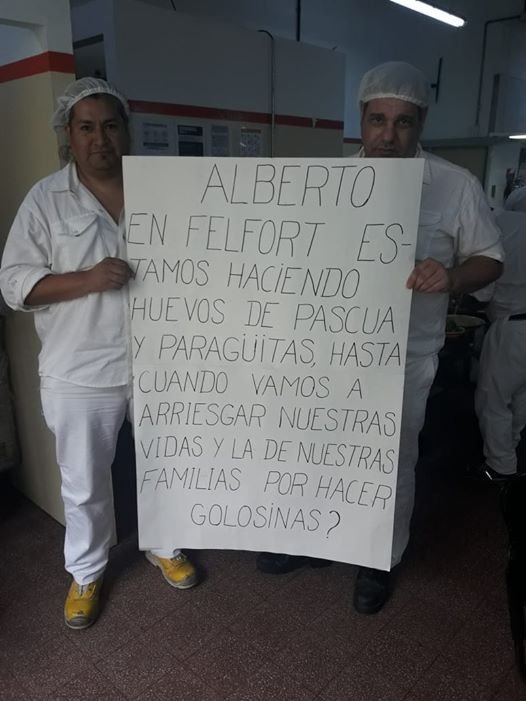 ALBERTO
EN FELFORT ES-
TAMOS HACIENDO
HUEVOS DE PASCUA
Y PARAGÜITAS, HASTA
CUANDO VAMOS A
ARRIESGAR NUESTRAS
VIDAS Y LA DE NUESTRAS
FAMILIAS POR HACER
GOLOSINAS?